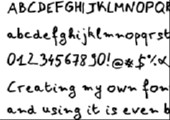 ABCDEFGHIJKLMNOPQR
abcdefghijklmnopqrst
01234567890!@*$%
Creating my own fon
and using it is even b